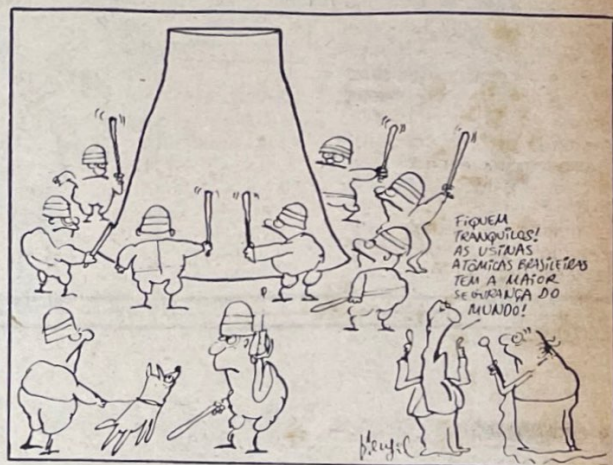 FIQUEM
TRANQUILOS!
AS USINAS
ATÔMICAS BRASILEIRAS
TEM A MAIOR
SEGURANÇA DO
MUNDO!
Henfil